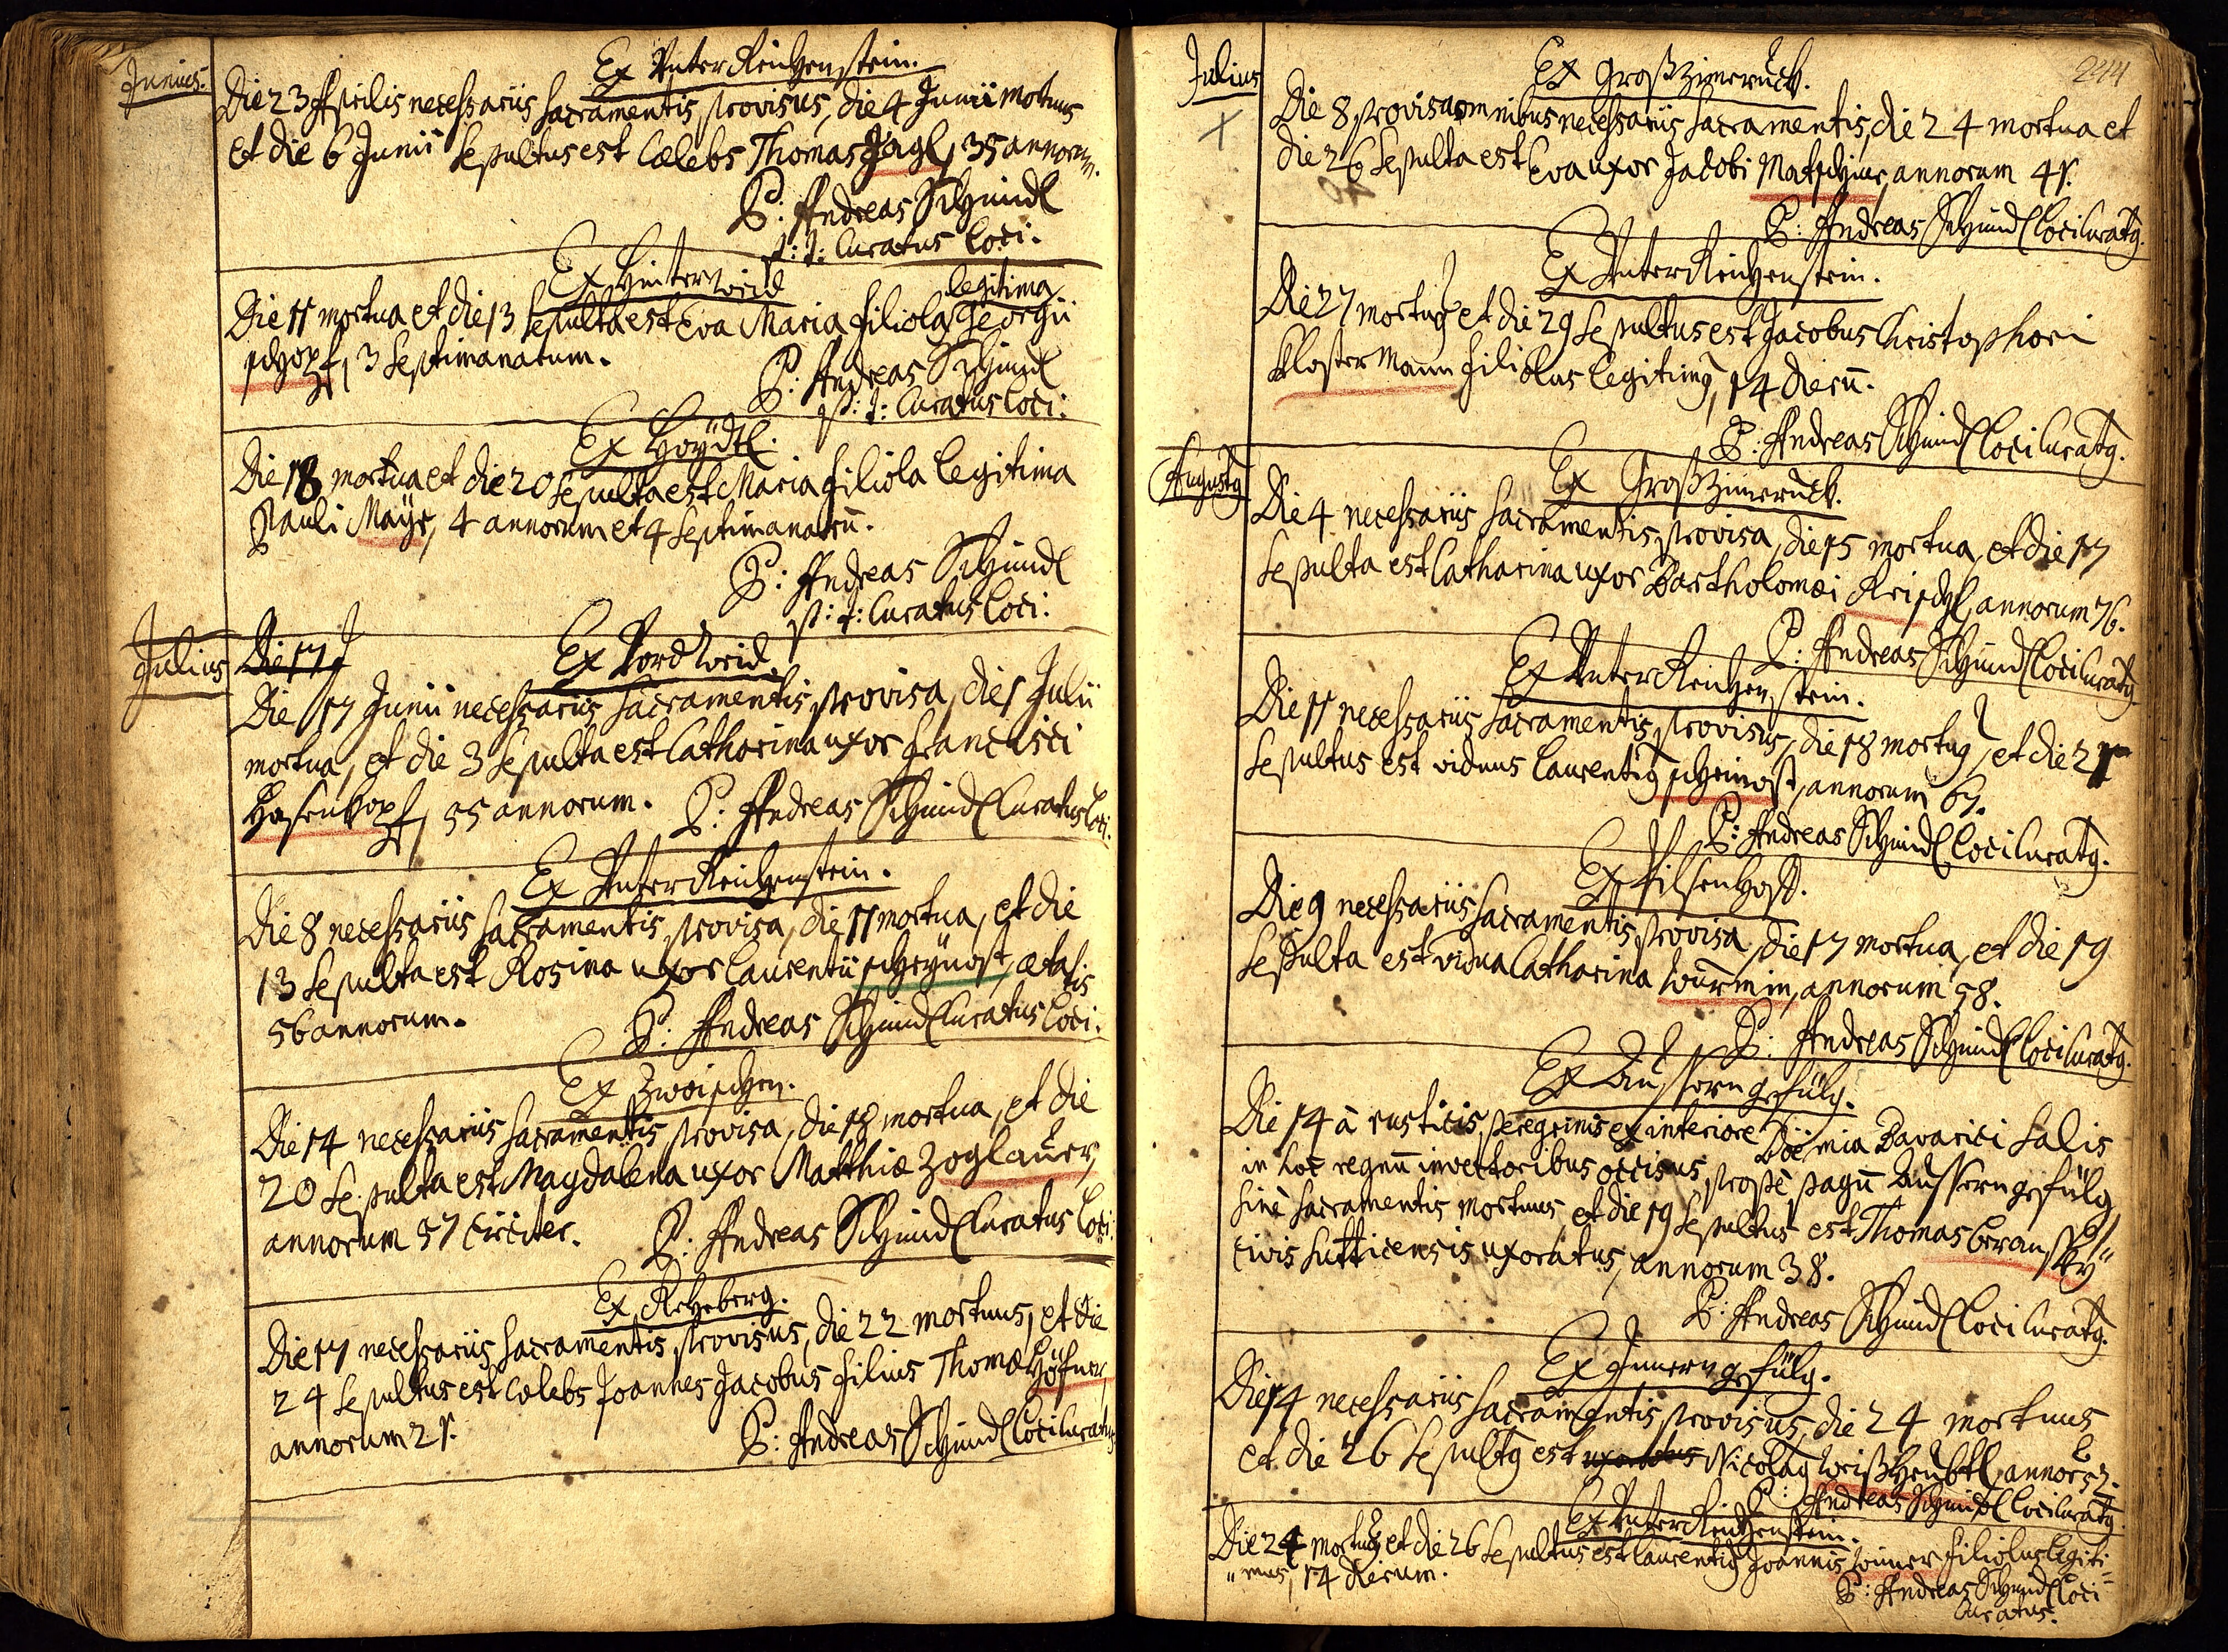 Junius.
Ex Unter Reichenstein.
Die 23 Aprilis necessariis sacramentis provisus, die 4 Junii mortuus
et die 6 Junii sepultus est cælebs Thomas Jägl, 35 annorum.
P: Andreas Schmidl
p: t: Curatus loci.
Ex Hinterwaid
Die 11 mortua et die 13 sepulta est Eva Maria filiola legitima Georgii
schopf, 3 septimanarum.
P: Andreas Schmidl
p: t: Curatus loci:
Ex Haÿdl.
Die 18 mortua et die 20 sepulta est Maria filiola legitima
Pauli Maÿr, 4 annorum et 4 septimanarū.
P: Andreas Schmidl
p: t: Curatus loci:
Julius
Die 17 J
Ex Vordwaid.
Die 17 Junii necessariis sacramentis provisa, die 1 Julii
mortua, et die 3 sepulta est Catharina uxor Francisci
Hasenkopf, 55 annorum. P: Andreas Schmidl Curatus loci.
Ex Unter Reichenstein.
Die 8 necessariis sacramentis provisa, die 11 mortua, et die
13 sepulta est Rosina uxor Laurentii scheÿnost, ætatis
56 annorum. P: Andreas Schmidl Curatus loci.
Ex Zwoischen.
Die 14 necessariis sacramentis provisa, die 18 mortua, et die
20 sepulta est Magdalena uxor Matthiæ Zoglauer,
annorum 57 circiter. P: Andreas Schmidl Curatus loci
Ex Rehberg.
Die 17 necessariis sacramentis provisus, die 22 mortuus, et die
24 sepultus est cælebs Joannes Jacobus filius Thomæ Höfner,
annorum 21. P: Andreas Schmidl loci Curatus
244
Julius
Ex Großzimeruck.
Die 8 provisa omnibus necessariis sacramentis, die 24 mortua et
die 26 sepulta est Eva uxor Jacobi Matschiner, annorum 41.
P: Andreas Schmidl loci Curatq.
Ex Unter Reichenstein.
Die 27 mortuq et die 29 sepultus est Jacobus Christophori
Klostermann filiolus legitimq, 14 dierū.
P: Andreas Schmidl loci Curatq.
Augustq
Ex Großzimeruck.
Die 4 necessariis sacramentis provisa, die 15 mortua, et die 17
sepulta est Catharina uxor Bartholomæi Reischl, annorum 76.
P: Andreas Schmidl loci Curatq
Ex Unter Reichenstein.
Die 11 necessariis sacramentis provisus, die 18 mortuq, et die 21
sepultus est viduus Laurentiq scheinost, annorum 67.
P: Andreas Schmidl loci Curatq.
Ex Filsenhoff.
Die 9 necessariis sacramentis provisa, die 17 mortua, et die 19
sepulta est vidua Catharina wurmin, annorum 58.
P: Andreas Schmidl loci Curatq.
Ex Äussern gefülg.
Die 14 à rusticis peregrinis ex interiore Böemia Bavarici salis
in hoc regnū invectoribus occisus prope pagū äussern gefülg
sine sacramentis mortuus, et die 19 sepultus est Thomas Beranskÿ
civis Sutticensis uxoratus, annorum 38.
P: Andreas Schmidl loci Curatq.
Ex Innern gefülg.
Die 14 necessariis sacramentis provisus, die 24 mortuus
et die 26 sepultq est uxoratus Nicolaq weißheubtl, annor 52.
P: Andreas Schmidl loci Curatq
Ex Unter Reichenstein.
Die 24 mortuq et die 26 sepultus est Laurentiq Joannis filiolus legiti=
"mus, 14 dierum.
P: Andreas Schmidl loci
Curatus.